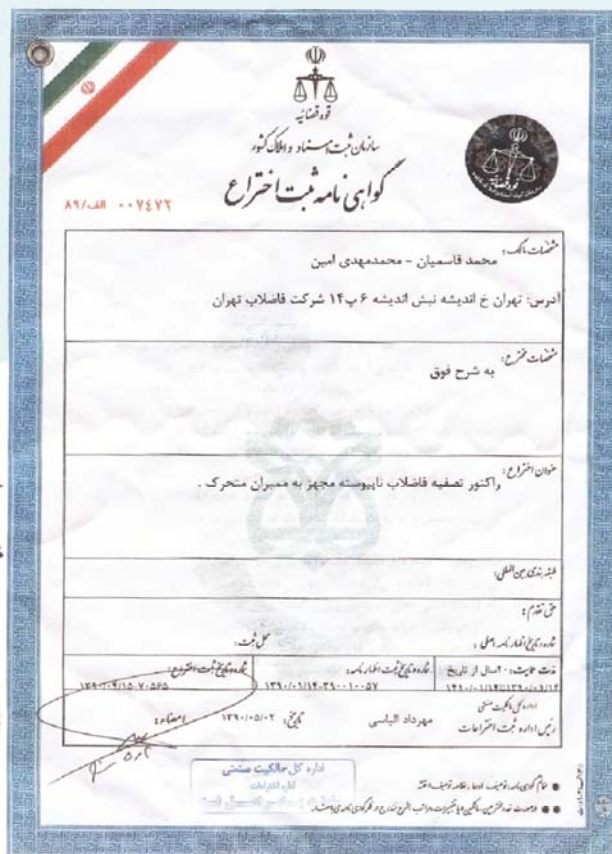 قوه قضائیه
سازمان ثبت اسناد و املاک کشور
گواهی نامه ثبت اختراع
الف/۸۹ ۰۰۷۴۷۲
مشخصات مالک:
محمد قاسمیان - محمدمهدی امین
آدرس: تهران خ اندیشه نبش اندیشه ۶ پ۱۴ شرکت فاضلاب تهران
مشخصات مخترع:
به شرح فوق
عنوان اختراع:
راکتور تصفیه فاضلاب ناپیوسته مجهز به ممبران متحرک .
طبقه بندی بین المللی:
حق تقدم:
شماره و تاریخ اظهارنامه اصلی: محل ثبت:
مدت حمایت: ۲۰سال از تاریخ شماره و تاریخ ثبت اظهارنامه: شماره و تاریخ ثبت اختراع:
۱۳۹۰/۰۱/۱۴-۳۹۰۰۱۰۰۵۷
اداره کل مالکیت صنعتی
رئیس اداره ثبت اختراعات مهرداد الیاسی تاریخ: ۱۳۹۰/۰۵/۰۲ امضاء:
اداره کل مالکیت صنعتی
اداره اختراعات